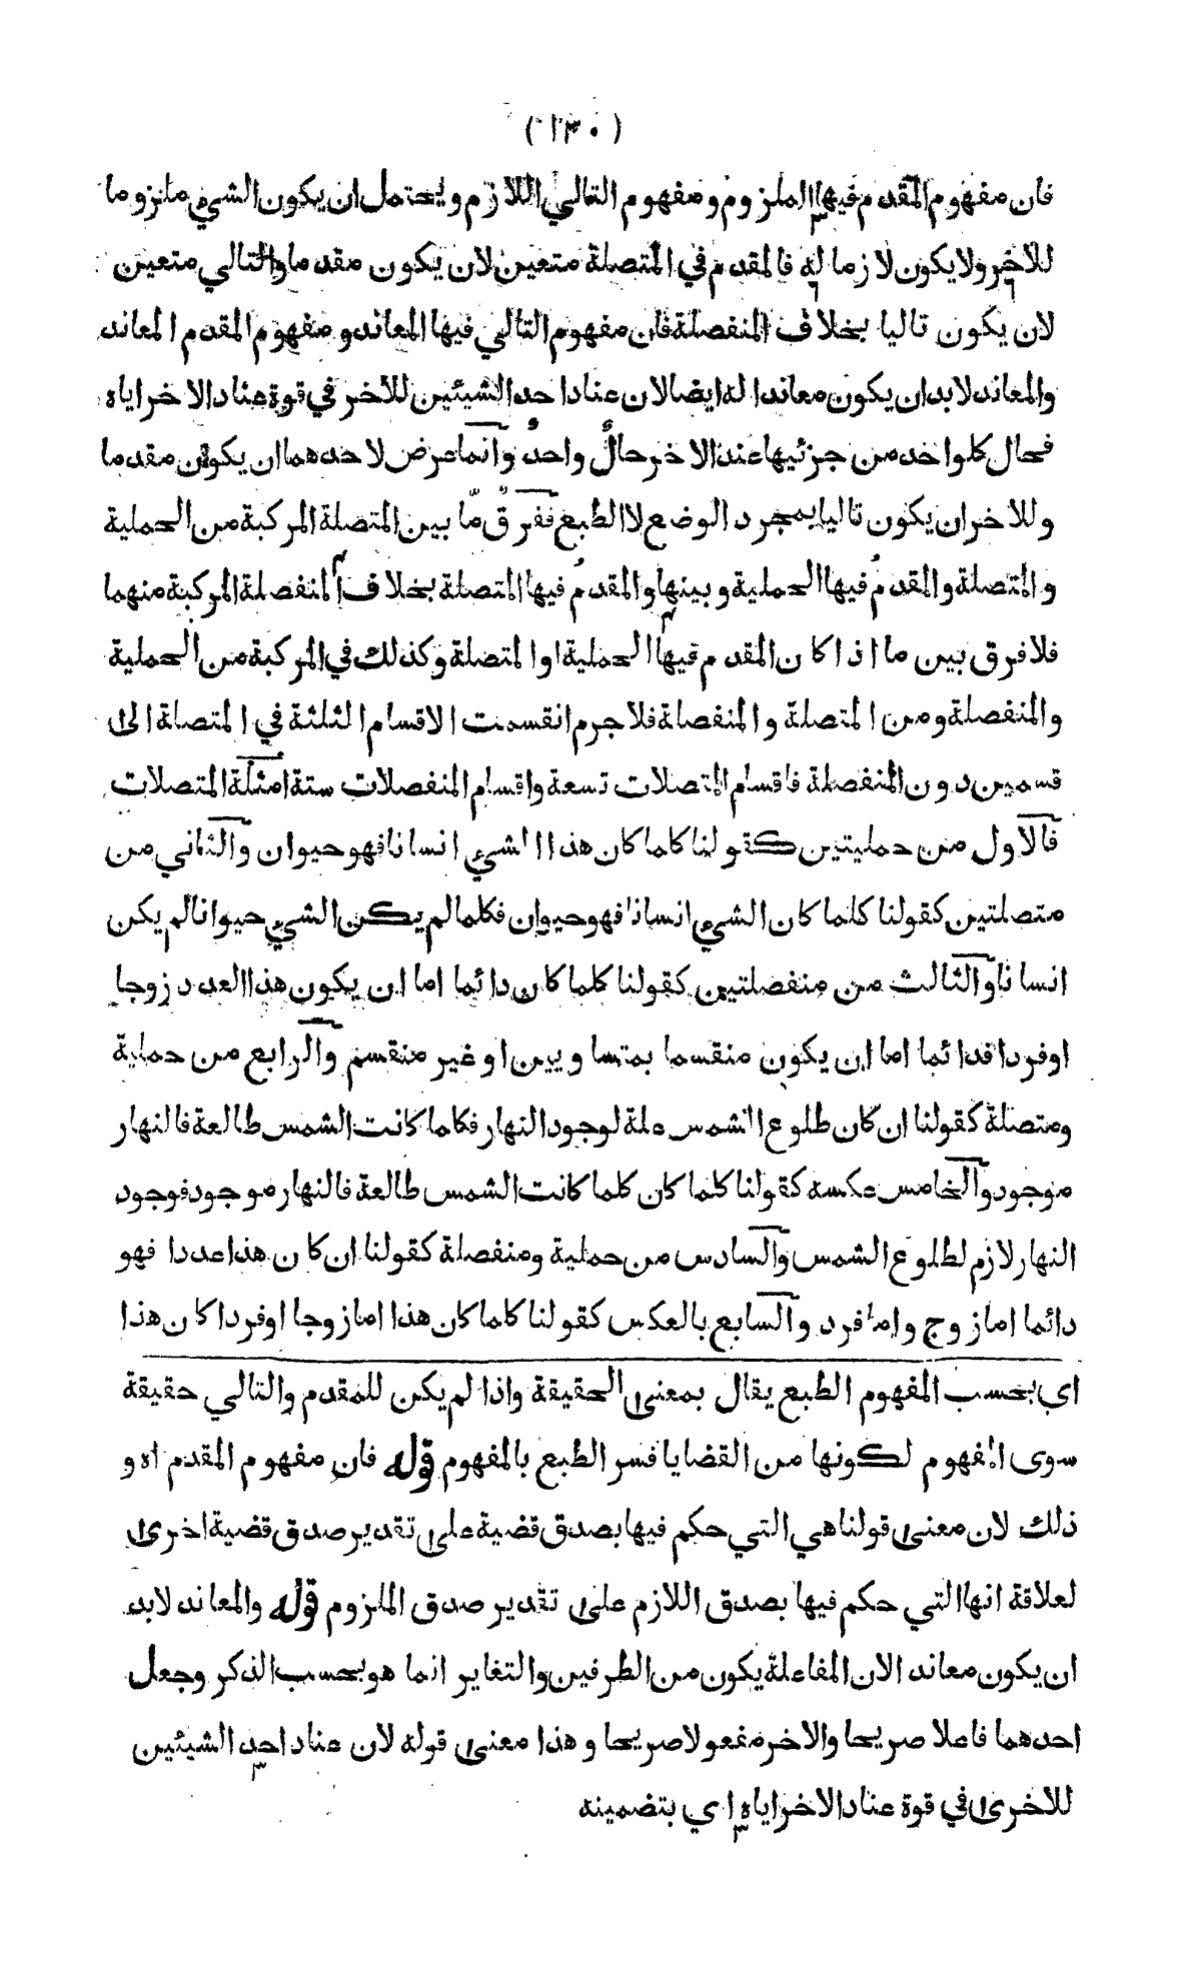 (١٣٠)
فان مفهوم المقدم فيها الملزوم ومفهوم التالي اللازم ويحتمل ان يكون الشيء ملزوما
للآخر ولا يكون لازما له فالمقدم في المتصلة متعين لان يكون مقدما والتالي متعين
لان يكون تاليا بخلاف المنفصلة فان مفهوم التالي فيها المعاند ومفهوم المقدم المعاند
والمعاند لابد ان يكون معاندا له ايضا لان عناد احد الشيئين للآخر في قوة عناد الاخر اياه
فحال كل واحد من جزئيها عند الاخر حالٌ واحدٌ وانما عرض لاحدهما ان يكون مقدما
وللاخر ان يكون تاليا بمجرد الوضع لا الطبع ففرقٌ مّا بين المتصلة المركبة من الحملية
والمتصلة والمقدمُ فيها الحملية وبينها والمقدمُ فيها المتصلة بخلاف المنفصلة المركبة منهما
فلا فرق بين ما اذا كان المقدم فيها الحملية او المتصلة وكذلك في المركبة من الحملية
والمنفصلة ومن المتصلة والمنفصلة فلا جرم انقسمت الاقسام الثلثة في المتصلة الى
قسمين دون المنفصلة فاقسام المتصلات تسعة واقسام المنفصلات ستة امثلة المتصلات
فالاول من حمليتين كقولنا كلما كان هذا الشيء انسانا فهو حيوان والثاني من
متصلتين كقولنا كلما كان الشيء انسانا فهو حيوان فكلما لم يكن الشيء حيوانا لم يكن
انسانا والثالث من منفصلتين كقولنا كلما كان دائما اما ان يكون هذا العدد زوجا
او فردا فدائما اما ان يكون منقسما بمتساويين او غير منقسم والرابع من حملية
ومتصلة كقولنا ان كان طلوع الشمس علة لوجود النهار فكلما كانت الشمس طالعة فالنهار
موجود والخامس عكسه كقولنا كلما كان كلما كانت الشمس طالعة فالنهار موجود فوجود
النهار لازم لطلوع الشمس والسادس من حملية ومنفصلة كقولنا ان كان هذا عددا فهو
دائما اما زوج واما فرد والسابع بالعكس كقولنا كلما كان هذا اما زوجا او فردا كان هذا
اي بحسب المفهوم الطبع يقال بمعنى الحقيقة واذا لم يكن للمقدم والتالي حقيقة
سوى المفهوم لكونها من القضايا فسر الطبع بالمفهوم قوله فان مفهوم المقدم اه و
ذلك لان معنى قولنا هي التي حكم فيها بصدق قضية على تقدير صدق قضية اخرى
لعلاقة انها التي حكم فيها بصدق اللازم على تقدير صدق الملزوم قوله والمعاند لابد
ان يكون معاندا لان المفاعلة يكون من الطرفين والتغاير انما هو بحسب الذكر وجعل
احدهما فاعلا صريحا والاخر مفعولا صريحا وهذا معنى قوله لان عناد احد الشيئين
للاخرى في قوة عناد الاخر اياه اي بتضمينه